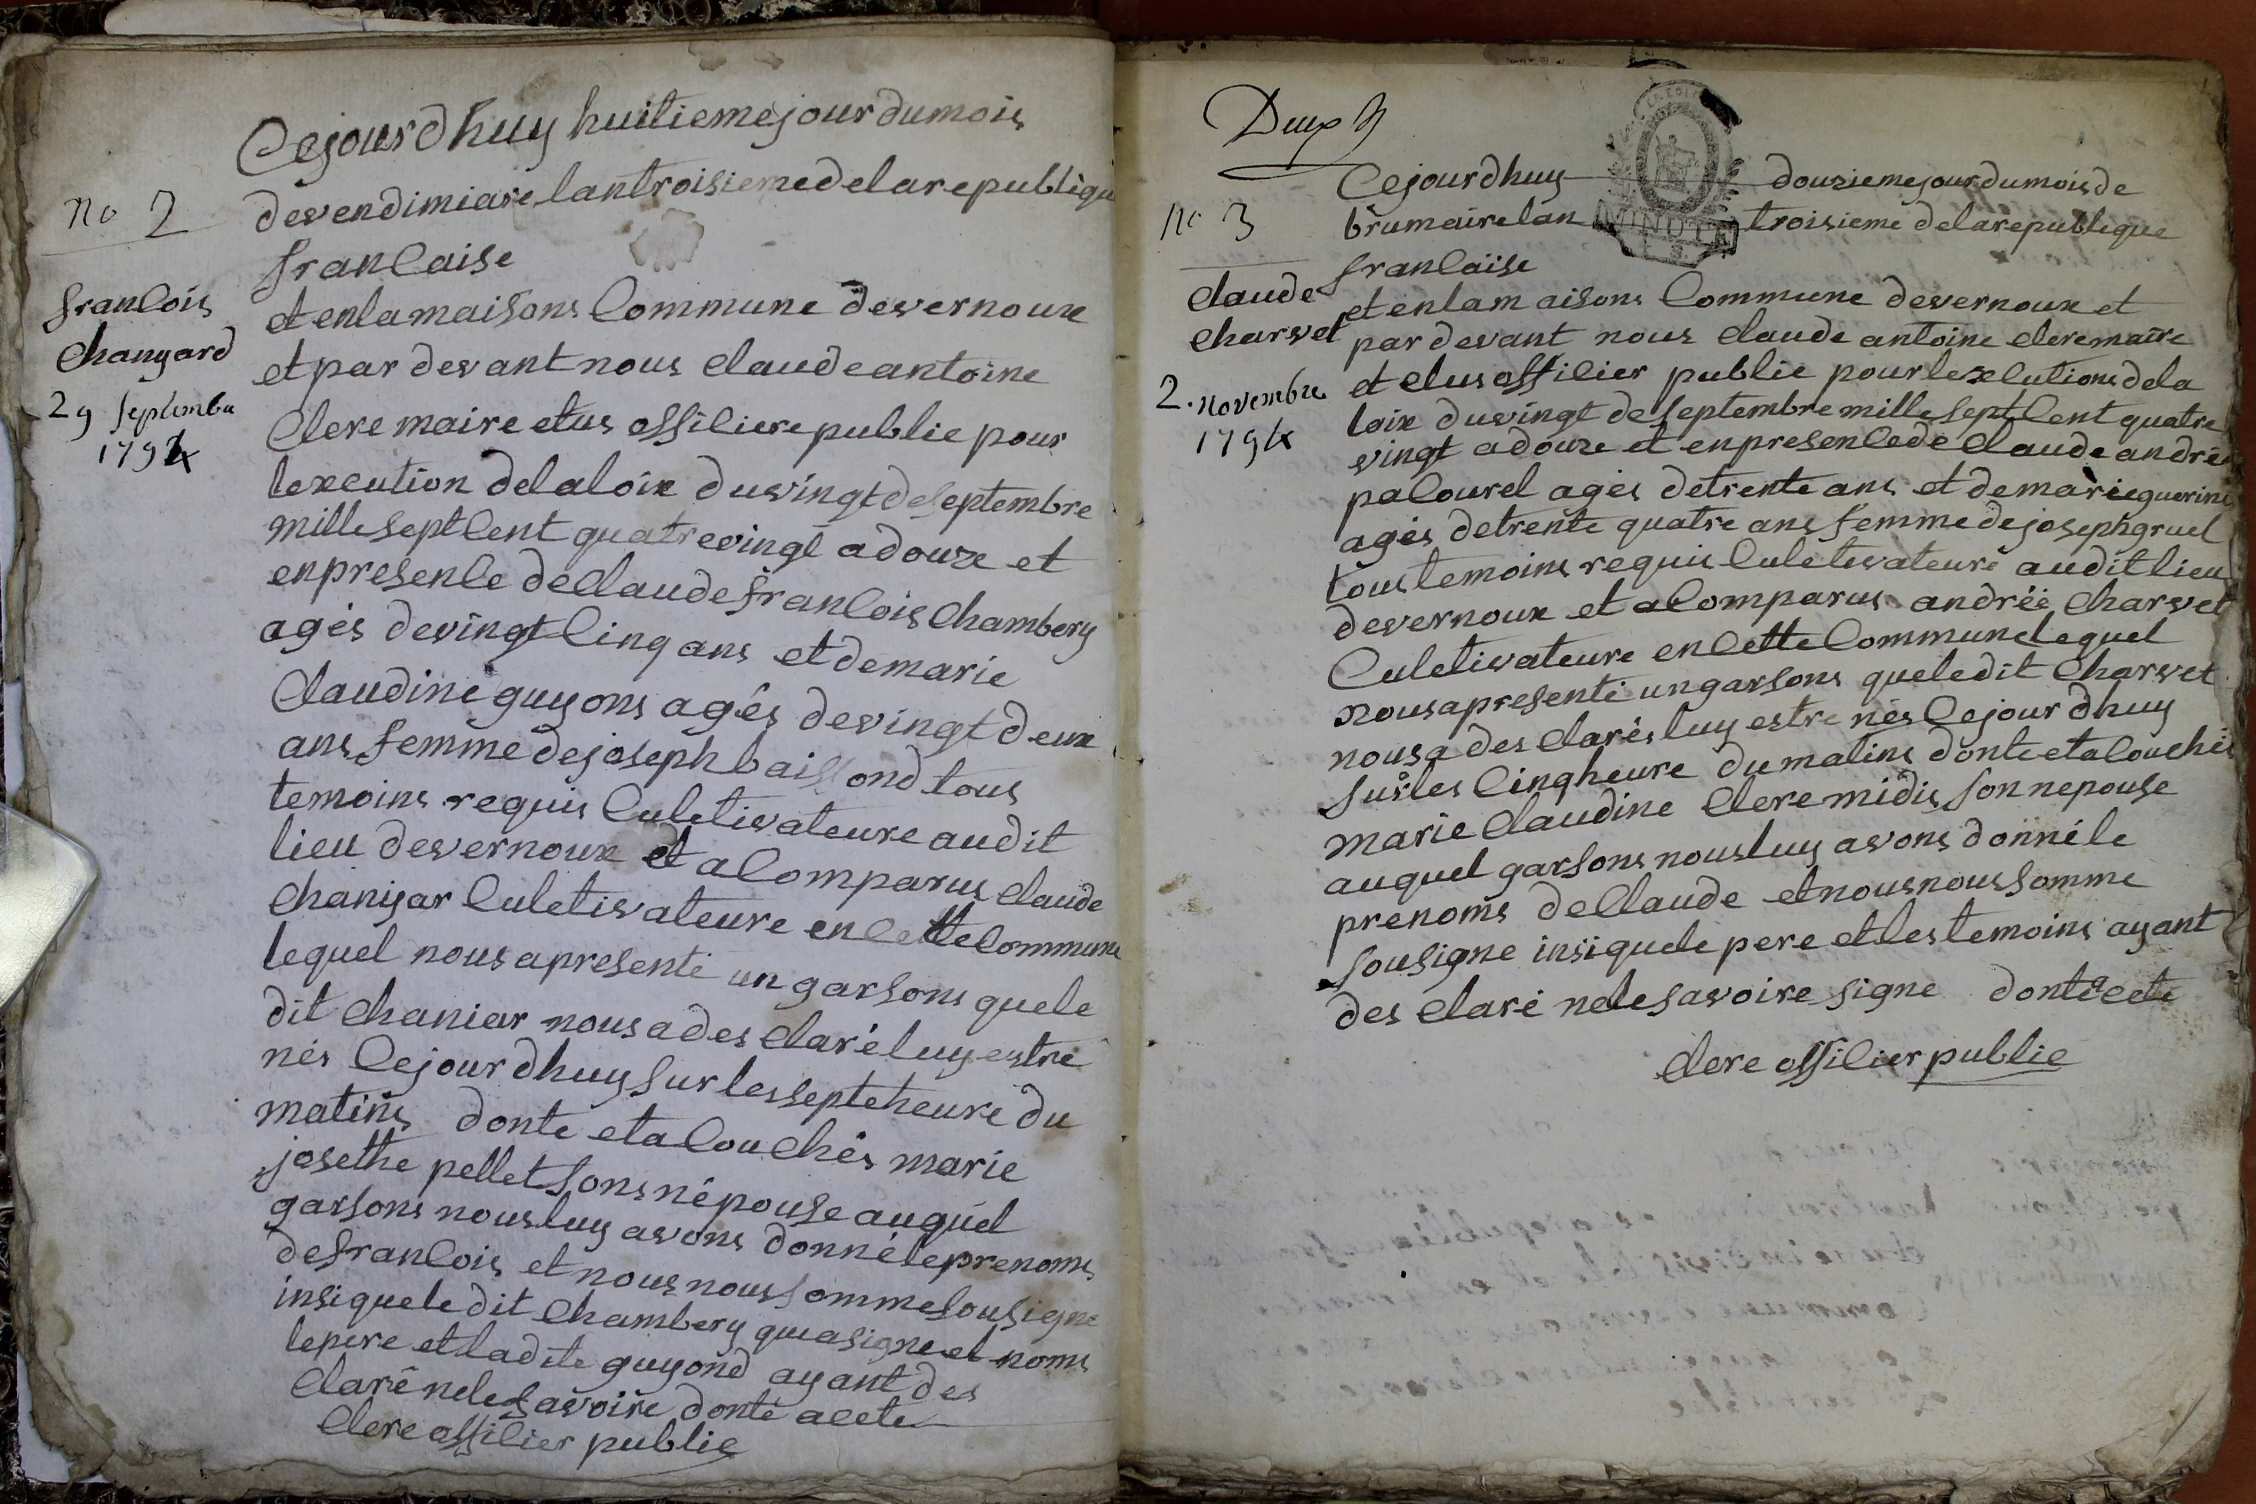 Cejourdhuy huitiemejourdumois
no 2
devendimiaire lantroisieme delarepublique
francaise
francois
chanyard
29 septembre
1794
et enlamaisons Commune devernoux
et par devant nous claudeantoine
Clere maire elus officiere public pour
lexcution delaloix duvingt deseptembre
mille sept Cent quatrevingt adouze et
enpresence declaudefrancois chambery
agés devingt Cinq ans et demarie
Claudine guyons agés devingt deux
ans femme dejoseph baissond tous
temoins requis Culetivateure audit
lieu devernoux et a Comparus claude
chaniyar Culetivateure en Cette Commune
lequel nous apresenté un garsons quele
dit chaniar nousa des claré luy estre
nés Cejourdhuy sur lessepteheure du
matins donte etacouchés marie
josethe pellet sons népouse auquel
garsons nousluy avons donnéleprenoms
defrancois et nous nous sommesousigne
insi queledit chambery quiasigne et noms
lepere etladite guyond ayant des
claré nelesavoire donte acete
Clere officier public
Deux
Cejourdhuy douziemejourdumoisde
no 3
brumaire lan troisieme delarepublique
MINUTE
francaise
claude
charvet
2. novembre
1794
et enlam aisons Commune devernoux et
par devant nous claude antoine cleremaire
et elus officier public pourlexcutions dela
loix duvingt deseptembre mille sept Cent quatre
vingt adouze et enpresencede claude andré
palourel agés detrente ans et demarieguerins
agés detrente quatre ans femme dejosephgruel
tous temoins requis Culetivateure auditlieu
devernoux et a Comparus andréé charvet
Culetivateure en Cette Communelequel
nousapresenté ungarsons queledit charvet
nousa des clarés luy estre nés Cejourdhuy
surles Cinqheure dumatins donte etacouchés
marie claudine clere midis sonnepouse
auquel garsons nousluy avons donnéle
prenoms declaude et nousnoussomme
sousigne insiquele pere et les temoins ayant
des claré nelesavoire signe donte acete
Clere officier public